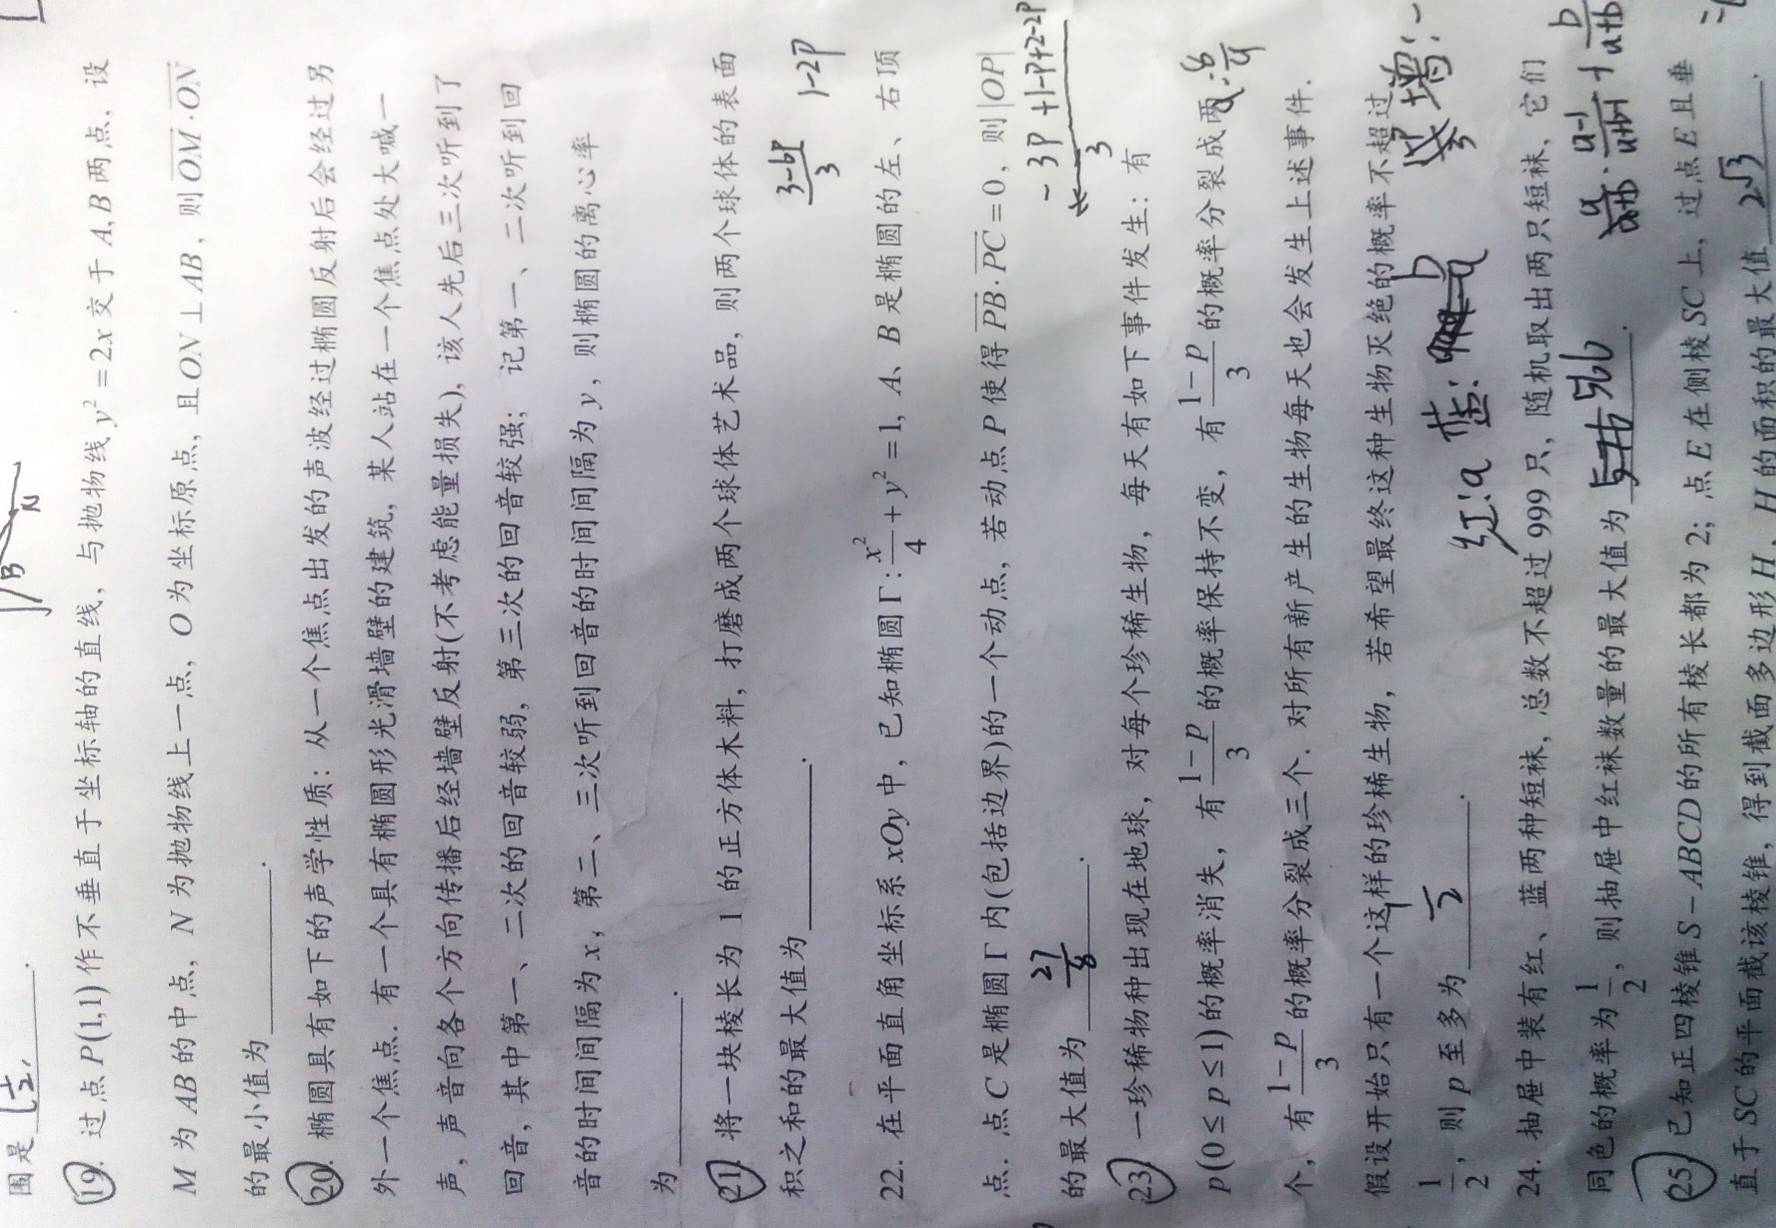 围是 [1/2,
B
N
19. 过点P(1,1)作不垂直于坐标轴的直线，与抛物线y²=2x交于A,B两点，设
M为AB的中点，N为抛物线上一点，O为坐标原点，且ON⊥AB，则OM·ON
的最小值为________.
20. 椭圆具有如下的声学性质：从一个焦点出发的声波经过椭圆反射后会经过另
外一个焦点. 有一个具有椭圆形光滑墙壁的建筑，某人站在一个焦点处大喊一
声，声音向各个方向传播后经墙壁反射(不考虑能量损失)，该人先后三次听到了
回音，其中第一、二次的回音较弱，第三次的回音较强；记第一、二次听到回
音的时间间隔为x，第二、三次听到回音的时间间隔为y，则椭圆的离心率
为________.
21. 将一块棱长为1的正方体木料，打磨成两个球体艺术品，则两个球体的表面
积之和的最大值为________.
3-6p/3 1-2P
22. 在平面直角坐标系xOy中，已知椭圆Γ:x²/4+y²=1, A、B是椭圆的左、右顶
点. 点C是椭圆Γ内(包括边界)的一个动点，若动点P使得PB·PC=0，则|OP|
的最大值为 27/8 .
-3P+1-P+2-2P
3
23. 一珍稀物种出现在地球，对每个珍稀生物，每天有如下事件发生：有
p(0≤p≤1)的概率消失，有(1-p)/3的概率保持不变，有(1-p)/3的概率分裂成两
个，有(1-p)/3的概率分裂成三个. 对所有新产生的生物每天也会发生上述事件.
假设开始只有一个这样的珍稀生物，若希望最终这种生物灭绝的概率不超过
1/2，则p至多为 1/2 .
红:a 蓝: b
24. 抽屉中装有红、蓝两种短袜，总数不超过999只，随机取出两只短袜，它们
同色的概率为1/2，则抽屉中红袜数量的最大值为________.
a/a+b · a-1/a+b-1 + b/a+b
25. 已知正四棱锥S-ABCD的所有棱长都为2；点E在侧棱SC上，过点E且垂
直于SC的平面截该棱锥，得到截面多边形H，H的面积的最大值 2√3 .